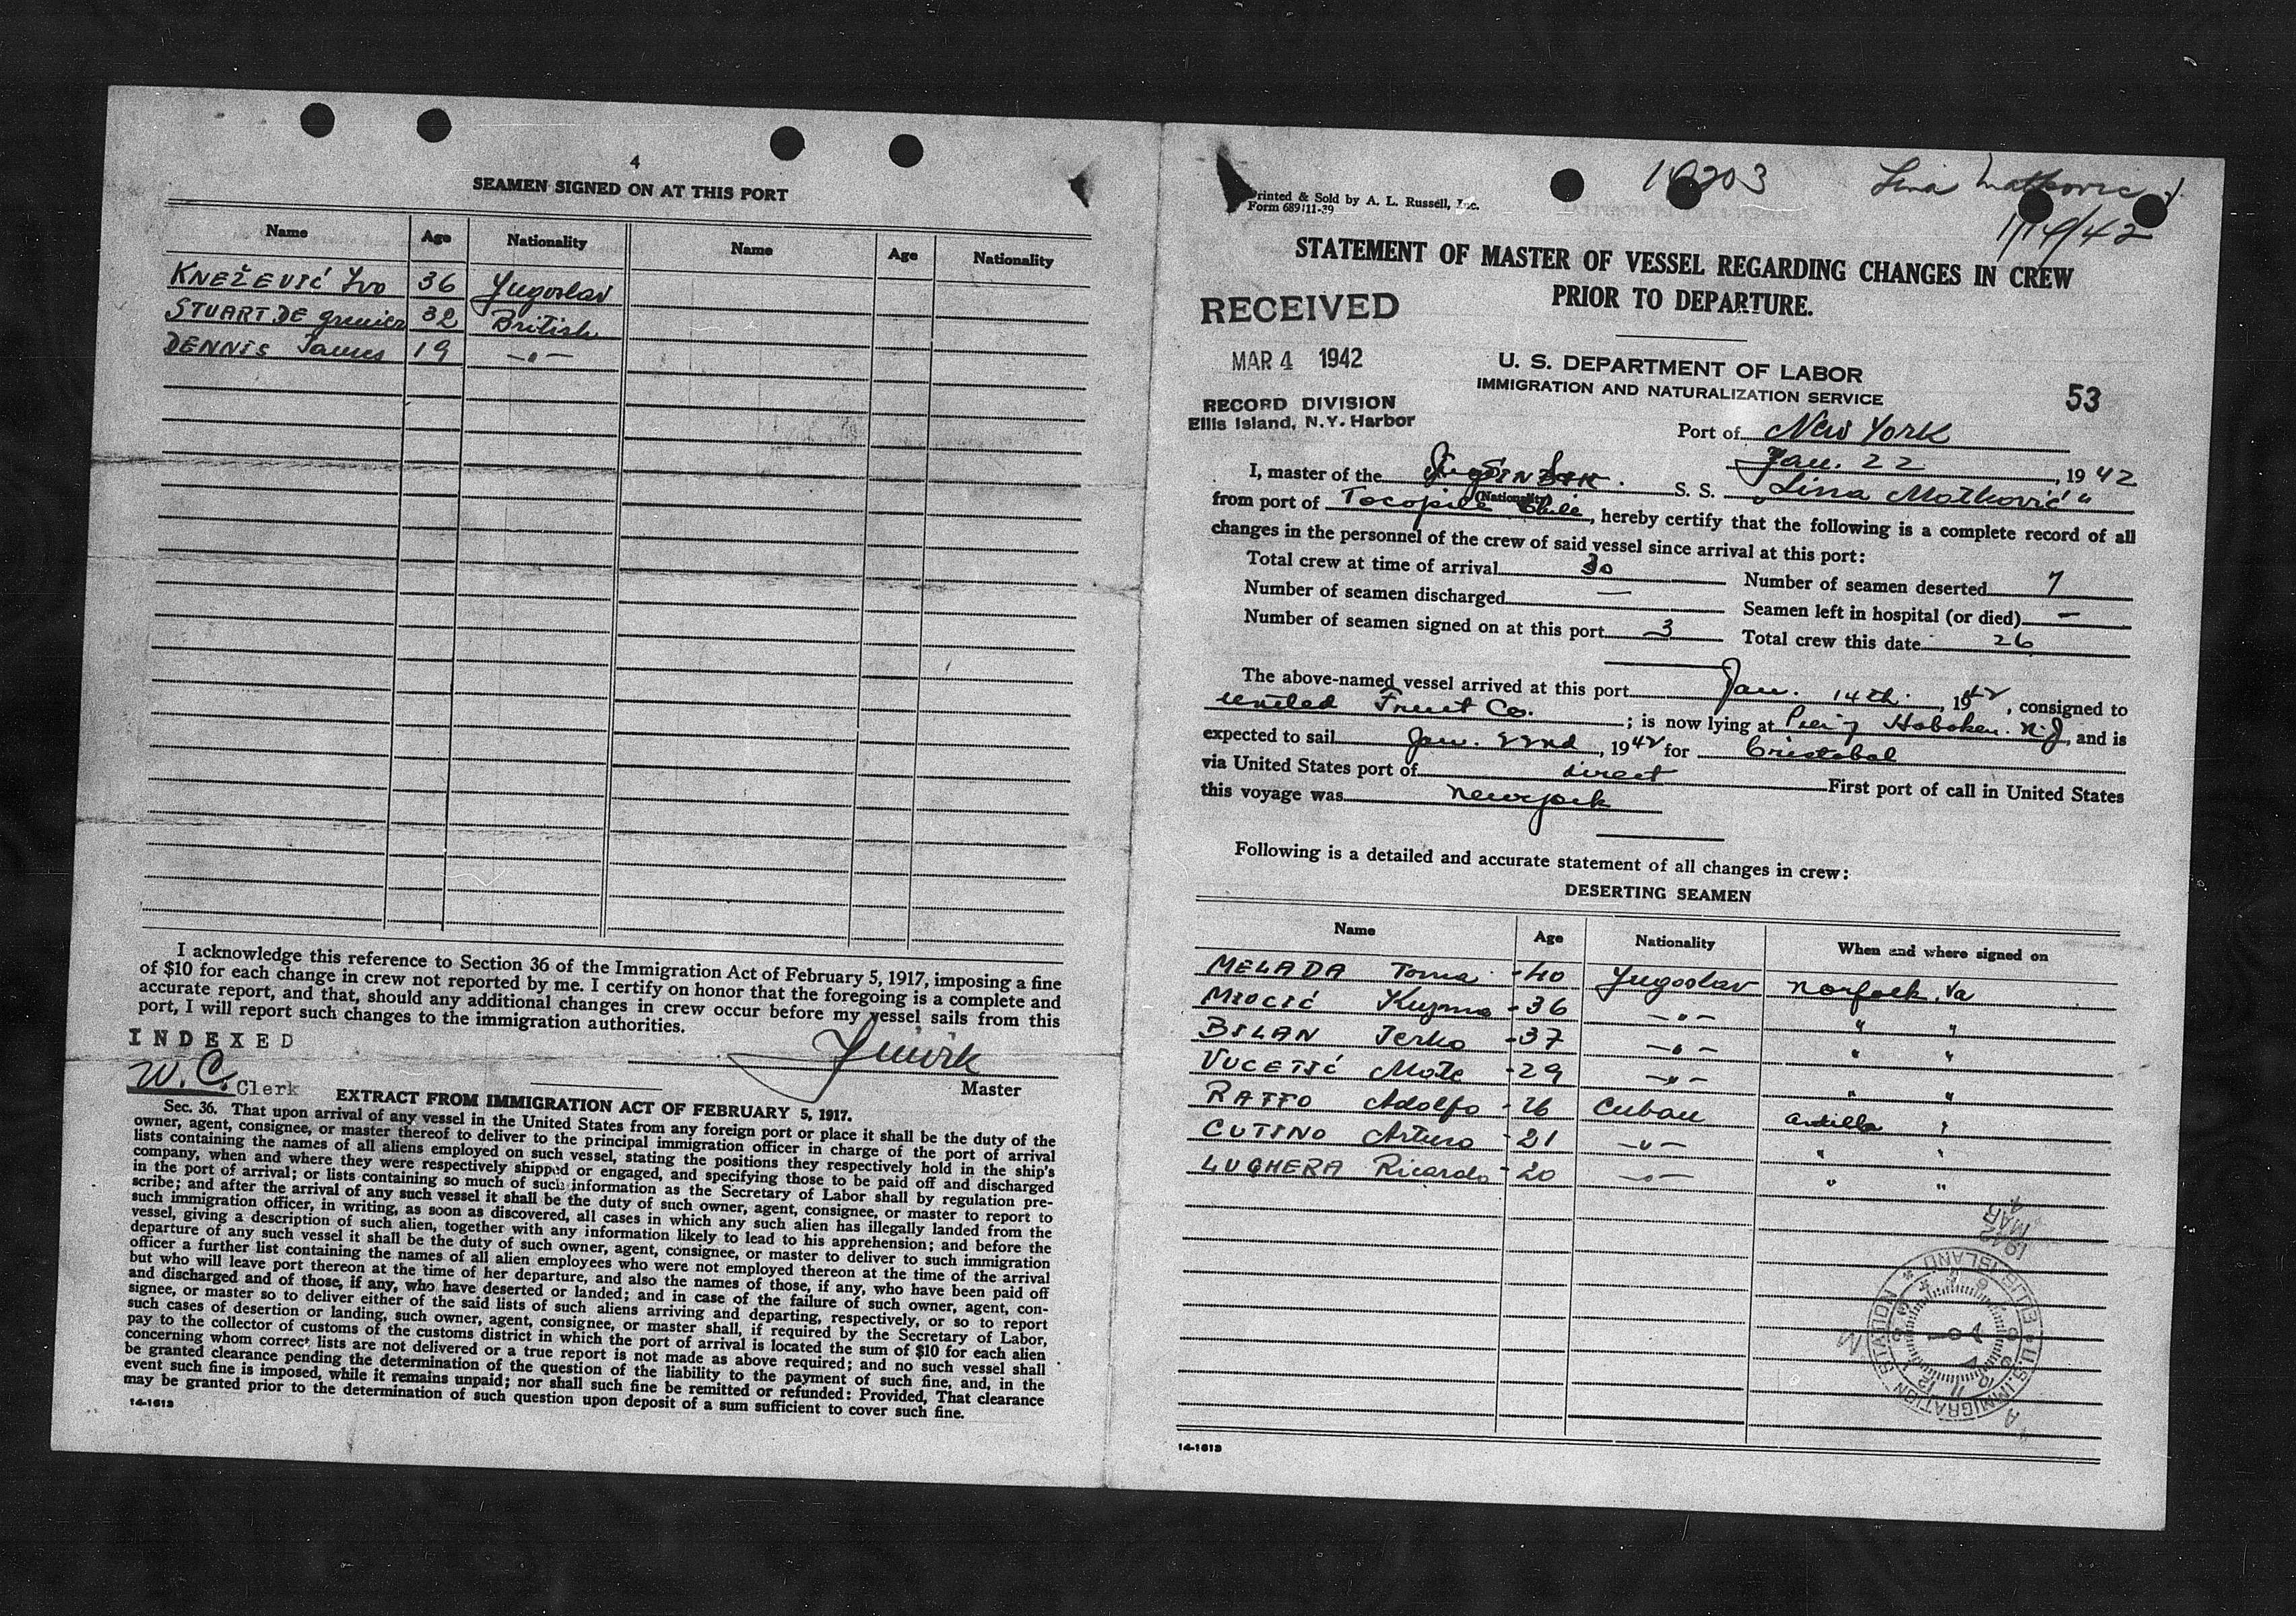 4
SEAMEN SIGNED ON AT THIS PORT
Name Age Nationality Name Age Nationality
KNEŽEVIĆ Ivo 36 Yugoslav
STUART DE 32 British
DENNIS James 19 —„—
I acknowledge this reference to Section 36 of the Immigration Act of February 5, 1917, imposing a fine
of $10 for each change in crew not reported by me. I certify on honor that the foregoing is a complete and
accurate report, and that, should any additional changes in crew occur before my vessel sails from this
port, I will report such changes to the immigration authorities.
INDEXED
W.C. Clerk
Master
EXTRACT FROM IMMIGRATION ACT OF FEBRUARY 5, 1917.
Sec. 36. That upon arrival of any vessel in the United States from any foreign port or place it shall be the duty of the
owner, agent, consignee, or master thereof to deliver to the principal immigration officer in charge of the port of arrival
lists containing the names of all aliens employed on such vessel, stating the positions they respectively hold in the ship's
company, when and where they were respectively shipped or engaged, and specifying those to be paid off and discharged
in the port of arrival; or lists containing so much of such information as the Secretary of Labor shall by regulation pre-
scribe; and after the arrival of any such vessel it shall be the duty of such owner, agent, consignee, or master to report to
such immigration officer, in writing, as soon as discovered, all cases in which any such alien has illegally landed from the
vessel, giving a description of such alien, together with any information likely to lead to his apprehension; and before the
departure of any such vessel it shall be the duty of such owner, agent, consignee, or master to deliver to such immigration
officer a further list containing the names of all alien employees who were not employed thereon at the time of the arrival
but who will leave port thereon at the time of her departure, and also the names of those, if any, who have been paid off
and discharged and of those, if any, who have deserted or landed; and in case of the failure of such owner, agent, con-
signee, or master so to deliver either of the said lists of such aliens arriving and departing, respectively, or so to report
such cases of desertion or landing, such owner, agent, consignee, or master shall, if required by the Secretary of Labor,
pay to the collector of customs of the customs district in which the port of arrival is located the sum of $10 for each alien
concerning whom correct lists are not delivered or a true report is not made as above required; and no such vessel shall
be granted clearance pending the determination of the question of the liability to the payment of such fine, and, in the
event such fine is imposed, while it remains unpaid; nor shall such fine be remitted or refunded: Provided, That clearance
may be granted prior to the determination of such question upon deposit of a sum sufficient to cover such fine.
14-1613
Printed & Sold by A. L. Russell, Inc.
Form 689 111-39
Lina Matkovic
1/14/42
STATEMENT OF MASTER OF VESSEL REGARDING CHANGES IN CREW
PRIOR TO DEPARTURE.
RECEIVED
MAR 4 1942
RECORD DIVISION
Ellis Island, N.Y. Harbor
U. S. DEPARTMENT OF LABOR
IMMIGRATION AND NATURALIZATION SERVICE
53
Port of New York
Jan. 22, 1942
I, master of the S. S. „Lina Matković"
(Nationality)
from port of Tocopile Chile, hereby certify that the following is a complete record of all
changes in the personnel of the crew of said vessel since arrival at this port:
Total crew at time of arrival 30 Number of seamen deserted 7
Number of seamen discharged — Seamen left in hospital (or died) —
Number of seamen signed on at this port 3 Total crew this date 26
The above-named vessel arrived at this port Jan. 14th, 1942, consigned to
United Fruit Co.; is now lying at Pier 7 Hoboken. N.J, and is
expected to sail Jan. 22nd, 1942 for Cristobal
via United States port of direct First port of call in United States
this voyage was Newyork
Following is a detailed and accurate statement of all changes in crew:
DESERTING SEAMEN
Name Age Nationality When and where signed on
MELADA Toma - 40 Yugoslav Norfolk, Va
MIOCIĆ Kuzma - 36 —„— " "
BILAN Jerko - 37 —„— " "
VUCETIĆ Mate - 29 —„— " "
RAFFO Adolfo - 26 Cuban Antilla "
CUTINO Arturo - 21 —„— " "
LUGHERA Ricardo - 20 —„— " "
U.S. IMMIGRATION STATION NORTH ELLIS ISLAND
1942 MAR 4
14-1613